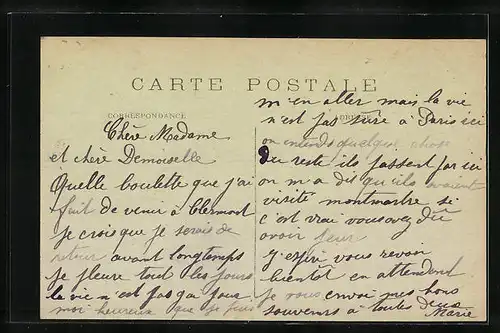 CARTE POSTALE
CORRESPONDANCE
Chère Madame
et chère Demoiselle
Quelle boulette que j'ai
fait de venir à Clermont
je crois que je serais de
retour avant longtemps
je pleure tout les jours
la vie n'est pas gai pour
moi heureux que je puis
m'en aller mais la vie
n'est pas sure à Paris ici
on entends quelque chose
Du reste ils passent par ici
on m'a dit qu'ils avaient
visité montmartre si
c'est vrai vous avez dû
avoir peur
J'espère vous revoir
bientot en attendend
je vous envoi mes bons
souvenirs à toutes deux
Marie